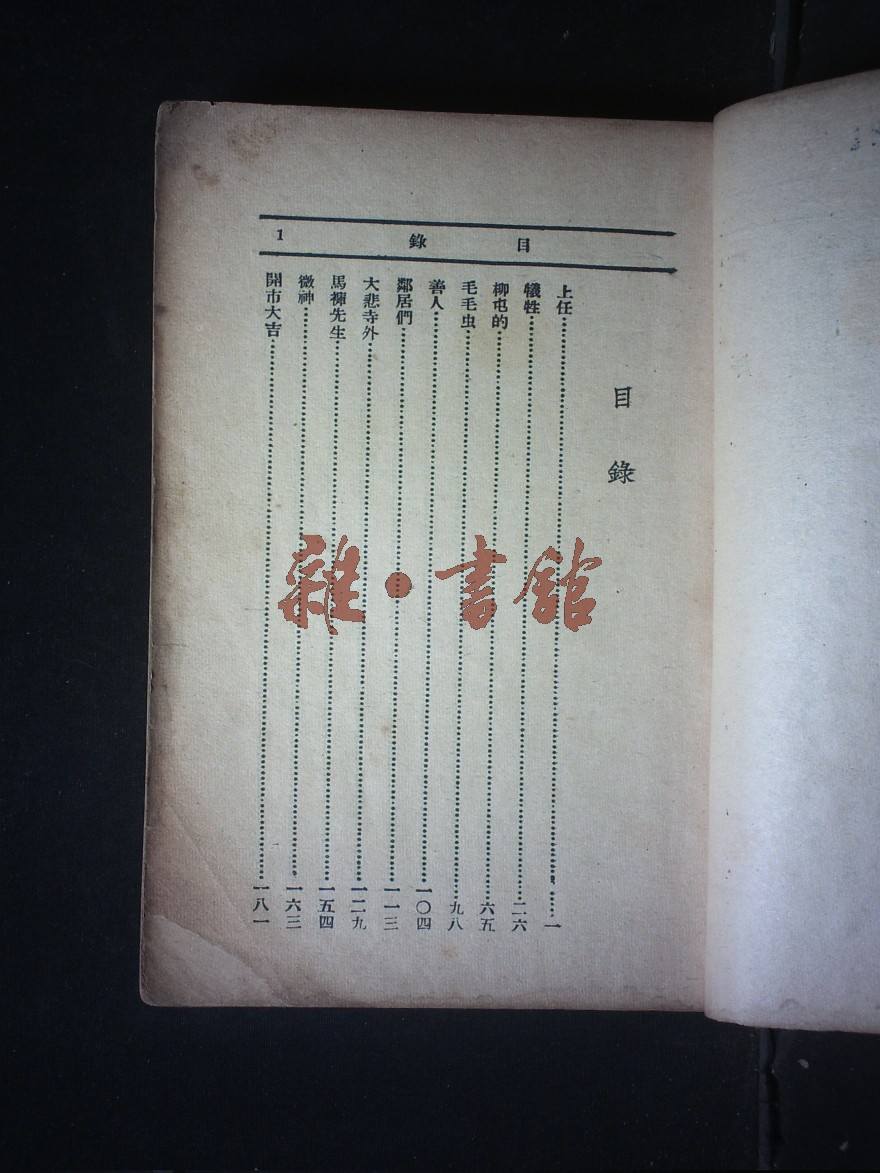 目錄 1
目錄
上任⋯⋯⋯⋯⋯⋯⋯⋯一
犧牲⋯⋯⋯⋯⋯⋯⋯⋯二六
柳屯的⋯⋯⋯⋯⋯⋯⋯⋯六五
毛毛虫⋯⋯⋯⋯⋯⋯⋯⋯九八
善人⋯⋯⋯⋯⋯⋯⋯⋯一〇四
鄰居們⋯⋯⋯⋯⋯⋯⋯⋯一一三
大悲寺外⋯⋯⋯⋯⋯⋯⋯⋯一二九
馬褲先生⋯⋯⋯⋯⋯⋯⋯⋯一五四
微神⋯⋯⋯⋯⋯⋯⋯⋯一六三
開市大吉⋯⋯⋯⋯⋯⋯⋯⋯一八一
雜·書館